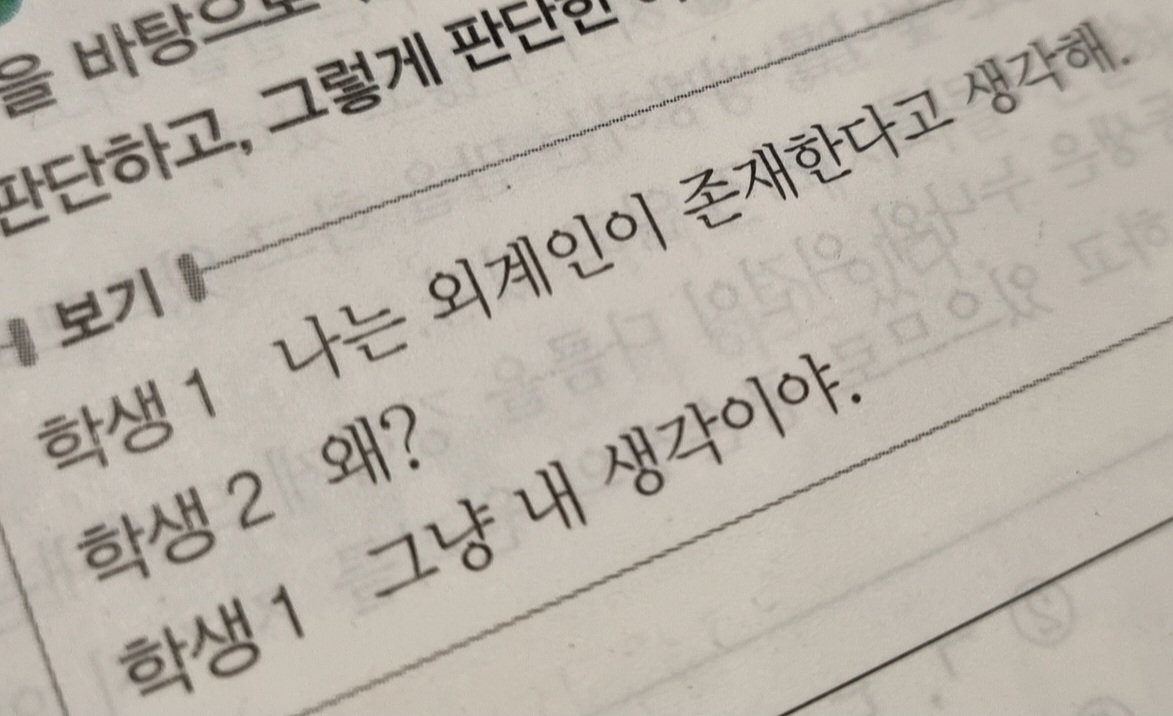 을 바탕으로
판단하고, 그렇게 판단한
보기
학생 1 나는 외계인이 존재한다고 생각해.
학생 2 왜?
학생 1 그냥 내 생각이야.